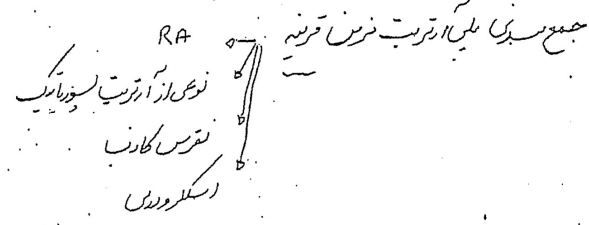 جمع بندی پلی آرتریت مزمن قرینه
RA
نوعی از آرتریت پسوریاتیک
نقرس کاذب
اسکلرودرمی